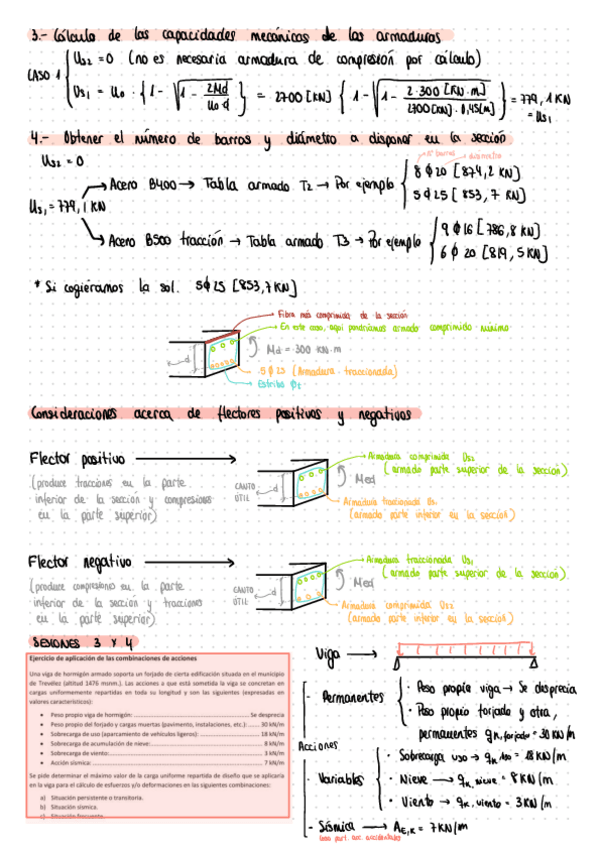 3.- Cálculo de las capacidades mecánicas de las armaduras
CASO 1
Us2 = 0 (no es necesaria armadura de compresión por cálculo)
Us1 = U0 · {1 - √(1 - 2Md / U0·d)} = 2700 [KN] {1 - √(1 - 2·300 [KN·m] / 2700 [KN]·0,45[m])} = 779,1 KN
= Us1
4.- Obtener el número de barras y diámetro a disponer en la sección
Us2 = 0
nº barras
diámetro
8 φ 20 [874,2 KN]
Acero B400 → Tabla armado T2 → Por ejemplo
5 φ 25 [853,7 KN]
Us1 = 779,1 KN
9 φ 16 [786,8 KN]
Acero B500 tracción → Tabla armado T3 → Por ejemplo
6 φ 20 [819,5 KN]
* Si cogiéramos la sol. 5φ25 [853,7 KN]
Fibra más comprimida de la sección
En este caso, aquí pondríamos armado comprimido mínimo
d
Md = 300 KN·m
5 φ 25 (Armadura traccionada)
Estribo φt
Consideraciones acerca de flectores positivos y negativos
Flector positivo →
(produce tracciones en la parte
inferior de la sección y compresiones
en la parte superior)
CANTO
ÚTIL
d
Armadura comprimida Us2
(armado parte superior de la sección)
Med
Armadura traccionada Us1
(armado parte inferior en la sección)
Flector negativo →
(produce compresiones en la parte
inferior de la sección y tracciones
en la parte superior)
CANTO
ÚTIL
d
Armadura traccionada Us1
(armado parte superior de la sección)
Med
Armadura comprimida Us2
(armado parte inferior en la sección)
SESIONES 3 Y 4
Ejercicio de aplicación de las combinaciones de acciones
Una viga de hormigón armado soporta un forjado de cierta edificación situada en el municipio
de Trevélez (altitud 1476 msnm.). Las acciones a que está sometida la viga se concretan en
cargas uniformemente repartidas en toda su longitud y son las siguientes (expresadas en
valores característicos):
• Peso propio viga de hormigón: Se desprecia
• Peso propio del forjado y cargas muertas (pavimento, instalaciones, etc.): 30 kN/m
• Sobrecarga de uso (aparcamiento de vehículos ligeros): 18 kN/m
• Sobrecarga de acumulación de nieve: 8 kN/m
• Sobrecarga de viento: 3 kN/m
• Acción sísmica: 7 kN/m
Se pide determinar el máximo valor de la carga uniforme repartida de diseño que se aplicaría
en la viga para el cálculo de esfuerzos y/o deformaciones en las siguientes combinaciones:
a) Situación persistente o transitoria.
b) Situación sísmica.
c) Situación frecuente.
Viga →
Acciones
- Permanentes
· Peso propio viga → Se desprecia
· Peso propio forjado y otra,
permanentes qk,forjado = 30 KN/m
- Variables
· Sobrecarga uso → qk,uso = 18 KN/m
· Nieve → qk,nieve = 8 KN/m
· Viento → qk,viento = 3 KN/m
- Sísmica → AE,K = 7 KN/m
(caso part. acc. accidentales)